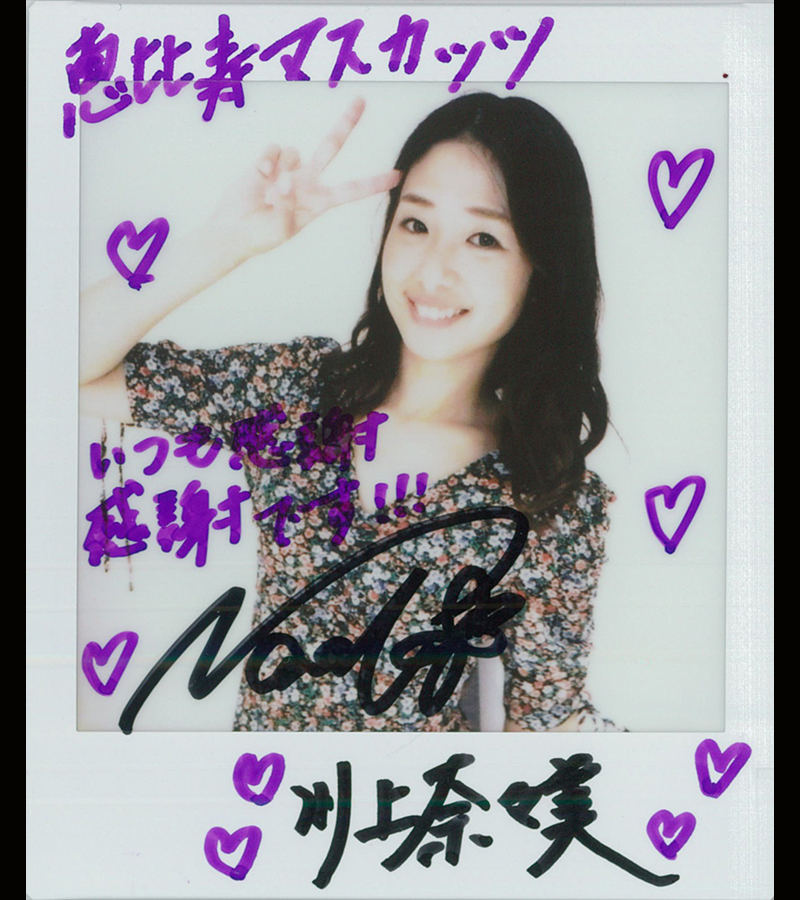 恵比寿マスカッツ
いつも感謝
感謝です!!!
川上奈々美